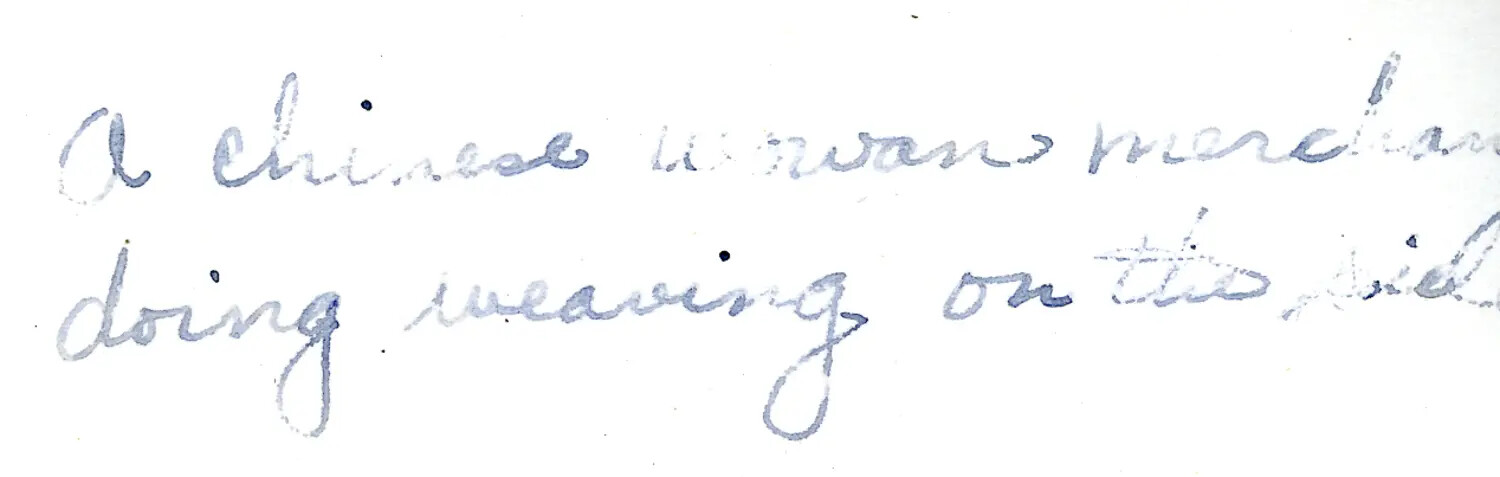 A chinese woman merchan
doing weaving on the sid